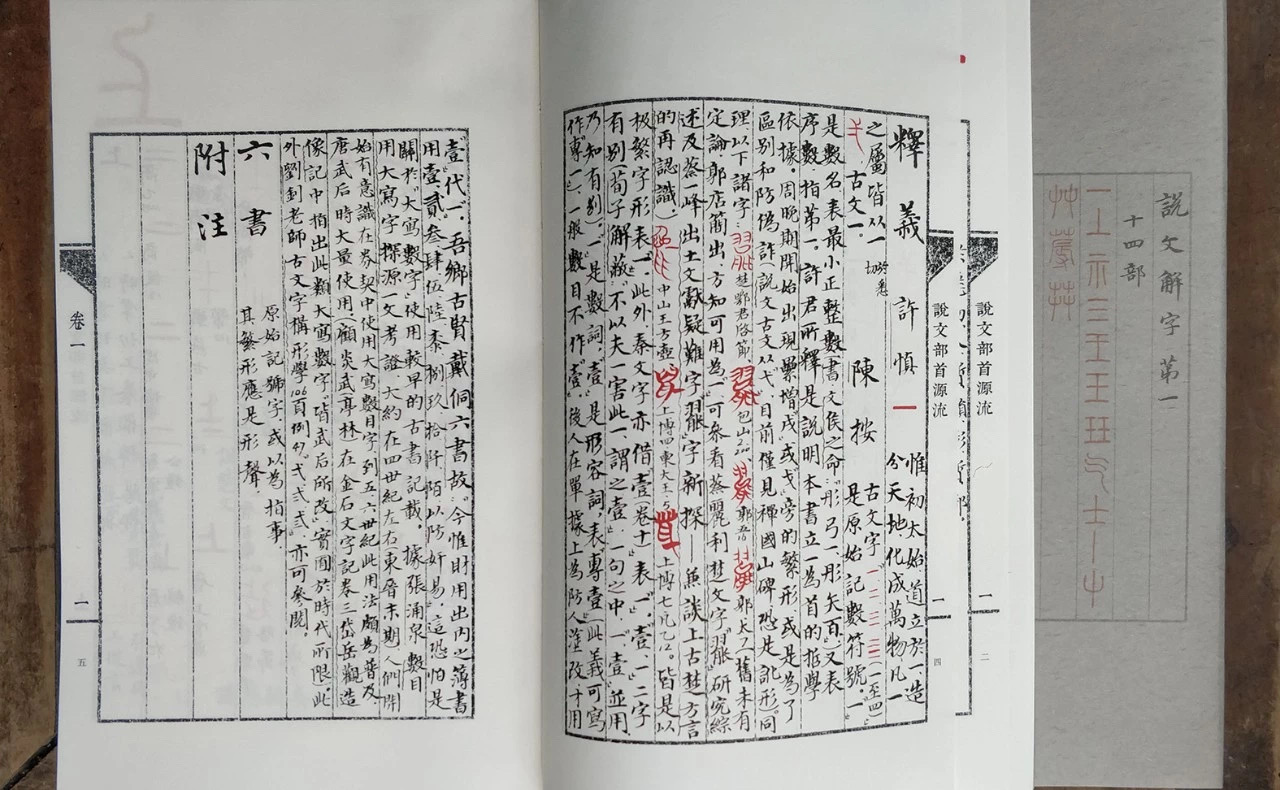 說文解字第一
十四部
一上示三王玉玨气士丨屮
艸蓐茻
說文部首源流
一
二
說文部首源流
一
四
釋義 許慎 一 惟初太始道立於一造
分天地化成萬物凡一
之屬皆从一 於悉切
弌 古文一
陳按 古文字一、二、三、亖(一至四)
是原始記數符號。"一"
是數名,表最小正整數(書文侯之命:彤弓一,彤矢百)又表
序數,指第一,許君所釋是說明本書立一為首的哲學
依據。周晚期開始出現累增戌或戈旁的繁形,或是為了
區别和防偽,許(說文古文从弋,目前僅見禪國山碑,恐是訛形)同
理。以下諸字:楚鄂君啓節、包山、郭店、郭太一,舊未有
定論,郭店簡出,方知可用為一,可參看蔡麗利楚文字"罷"研究綜
述及蔡一峰出土文獻疑難字"罷"字新探——兼談上古楚方言
的再認識。中山王方壺、上博四東大王5、上博七凡乙12。皆是以
極繁字形表"一"。此外,秦文字亦借壹(卷十)表"一"。壹、一二字
有别(荀子解蔽:"不以夫一害此一,謂之壹。"一句之中,一、壹並用,
乃知有别)。"一"是數詞,"壹"是形容詞,表專壹(此義可寫
作"專一"),一般數目不作"壹"。後人在單據上為防人塗改才用
"壹"代"一"。吾鄉古賢戴侗六書故:"今惟財用出內之簿書
用壹貳叁肆伍陸柒捌玖拾阡陌以防奸易。"這恐怕是
關於"大寫"數字使用較早的古書記載。據張涌泉數目
用大寫字探源一文考證,大約在四世紀左右東晉末期人們開
始有意識在券契中使用大寫數目字,到五、六世紀此用法頗為普及,
唐武后時大量使用,顧炎武(亭林)在金石文字記卷三岱岳觀造
像記中指出此類大寫數字"皆武后所改",實囿於時代所限。此
外,劉釗老師古文字構形學106頁例勹、弌、弍、弎,亦可參閱。
六書 原始記號字,或以為指事。
其繁形應是形聲。
附注
卷一
一
五